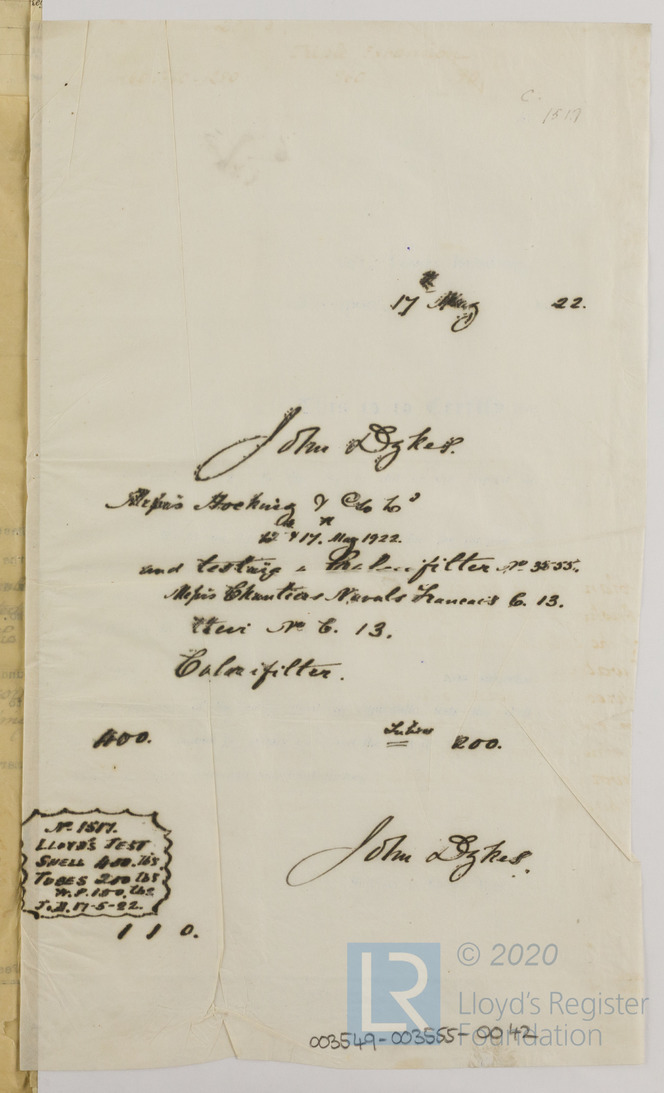 C.
1517
17th May 22.
John Dykes.
Messrs Hocking & Co Ld
& 17th May 1922.
and testing a Calorifilter No 3555.
Messrs Chantiers Navals Francais C. 13.
No C. 13.
Calorifilter.
400. Tubes 200.
No 1517.
LLOYD'S TEST
SHELL 400 lbs.
TUBES 200 lbs
W.P. 150 lbs
J.D. 17-5-22.
John Dykes.
1 1 0.
© 2020
LR Lloyd's Register
Foundation
003549-003555-0042